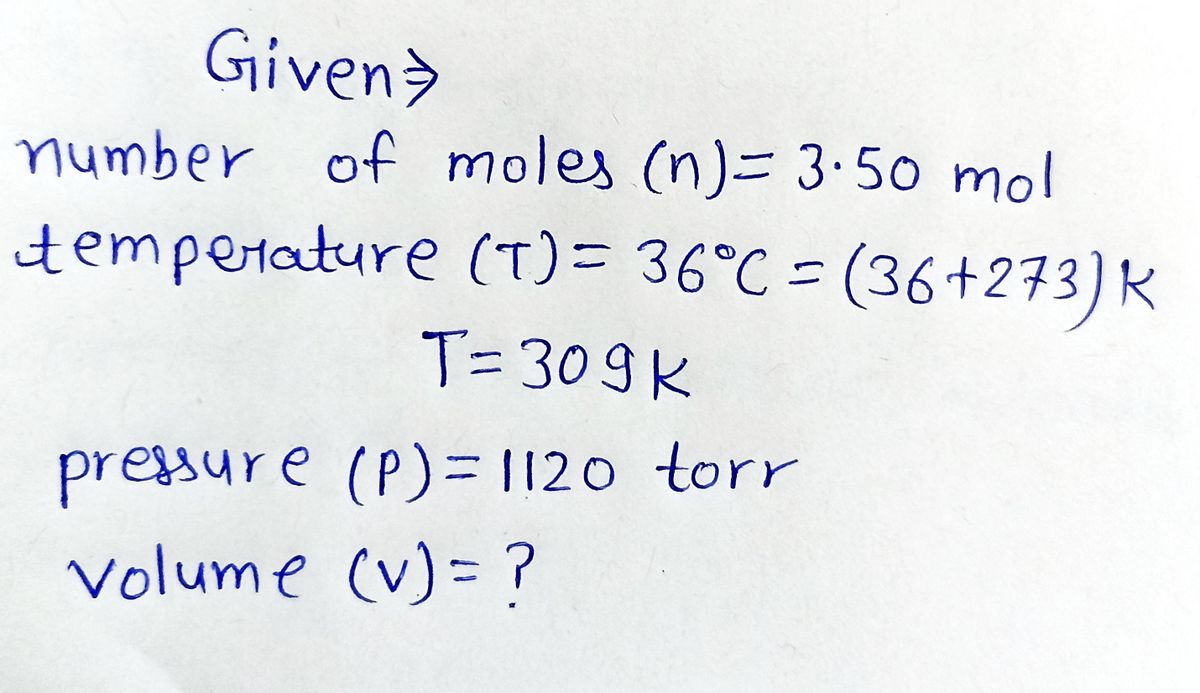 Given⇒
number of moles (n)= 3.50 mol
temperature (T)= 36°C = (36+273) K
T= 309K
pressure (P)= 1120 torr
volume (v)= ?